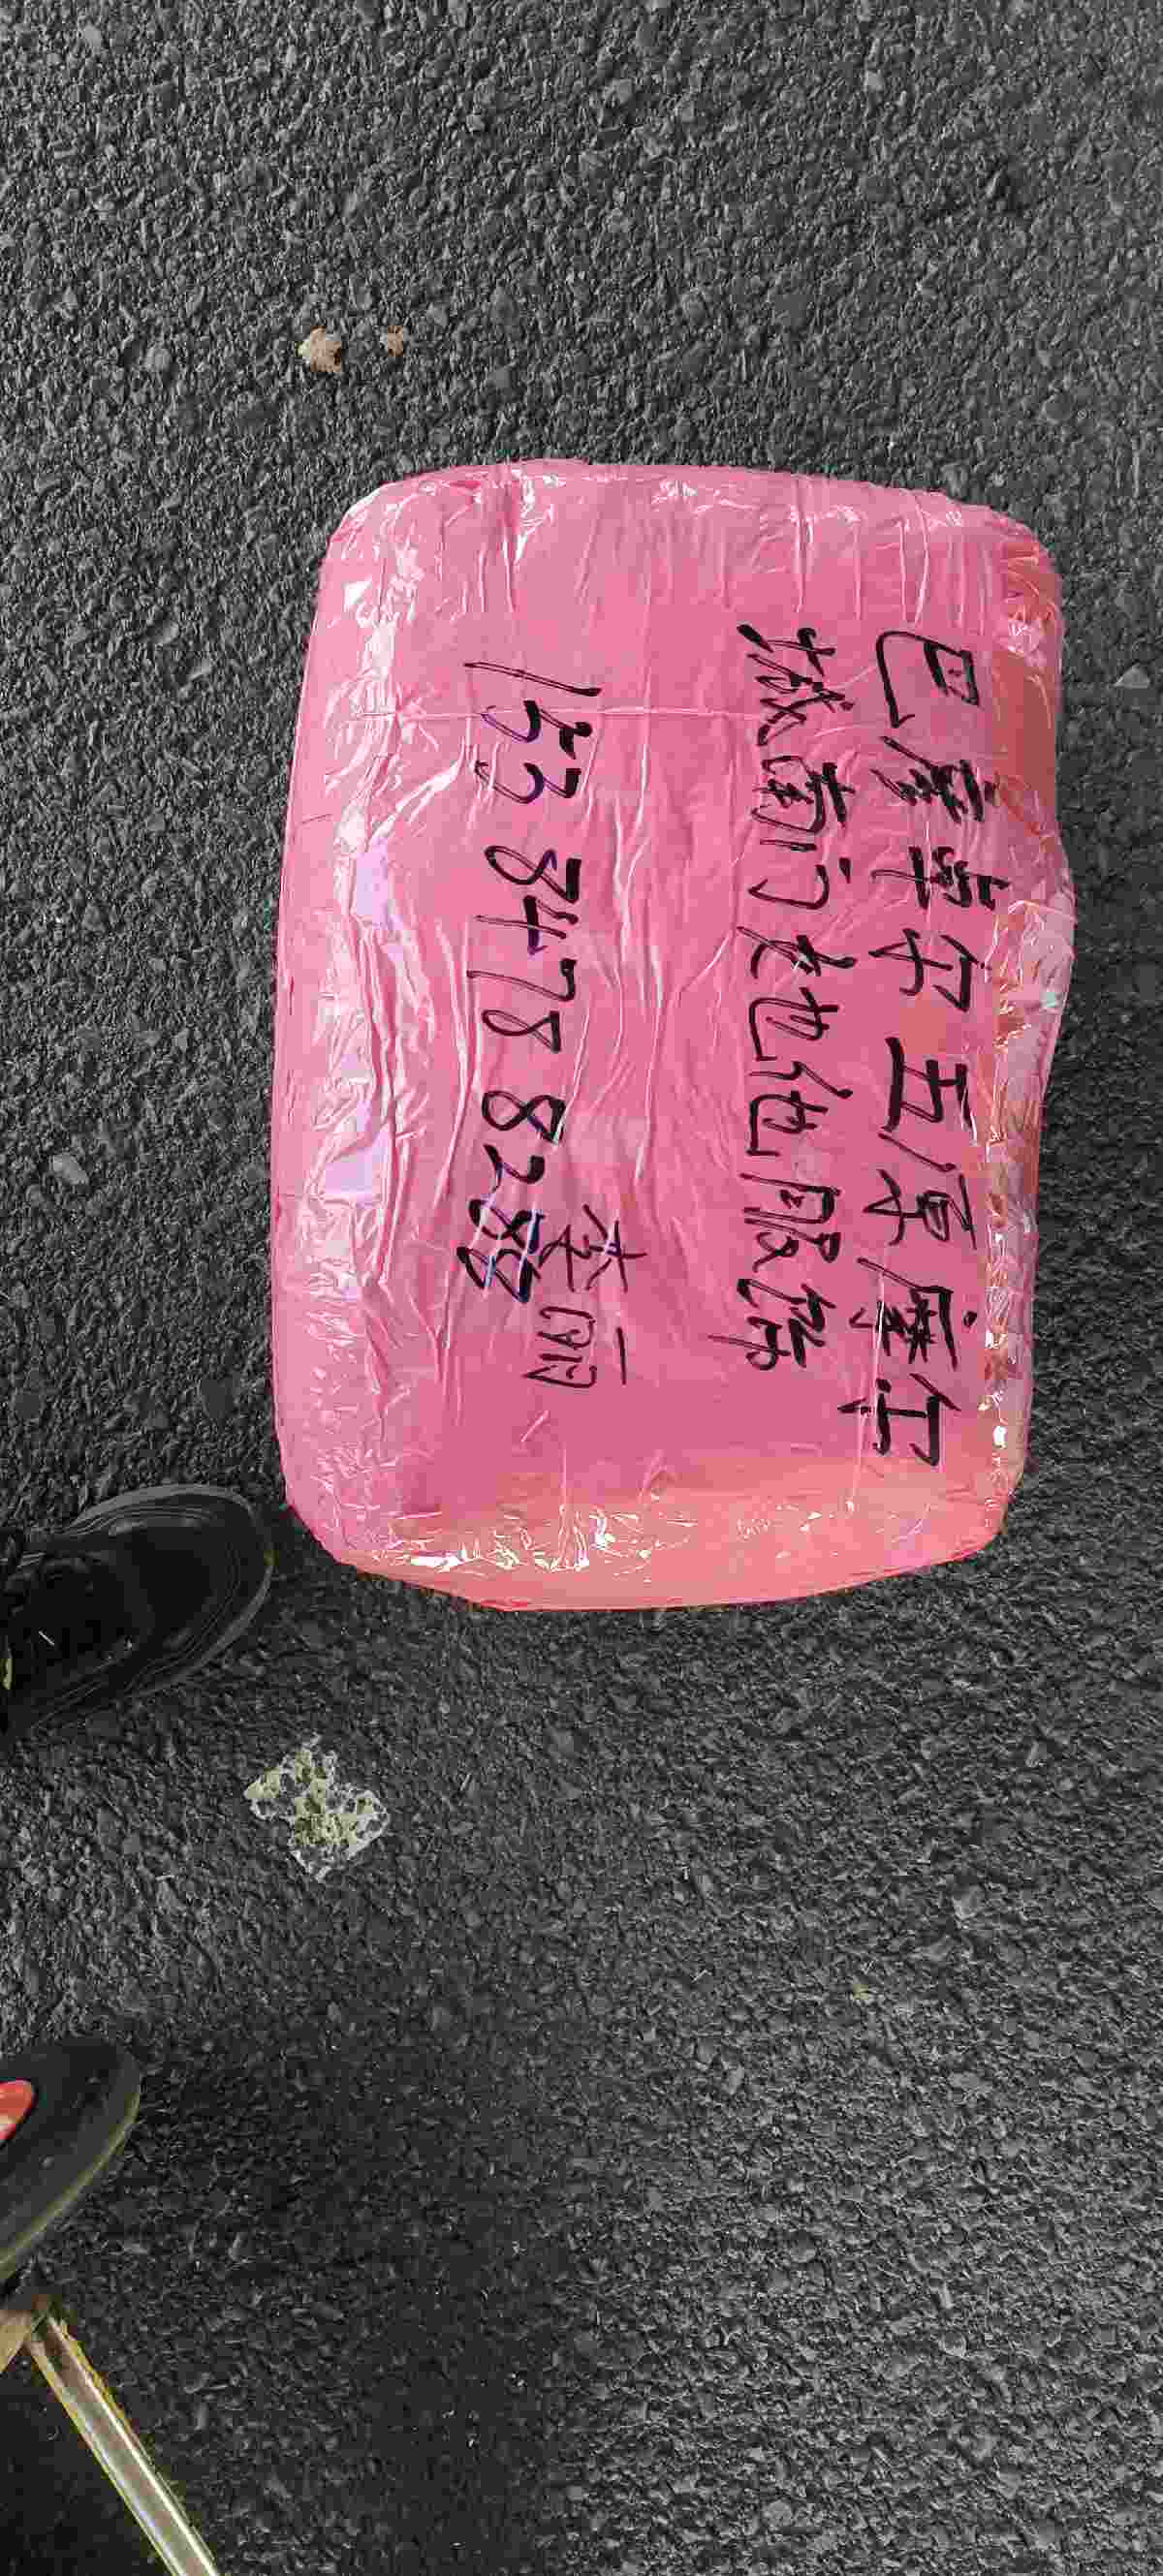 巴彦淖尔 五原 摩尔
城南门衣也他服饰
153 8478 8288
李丽